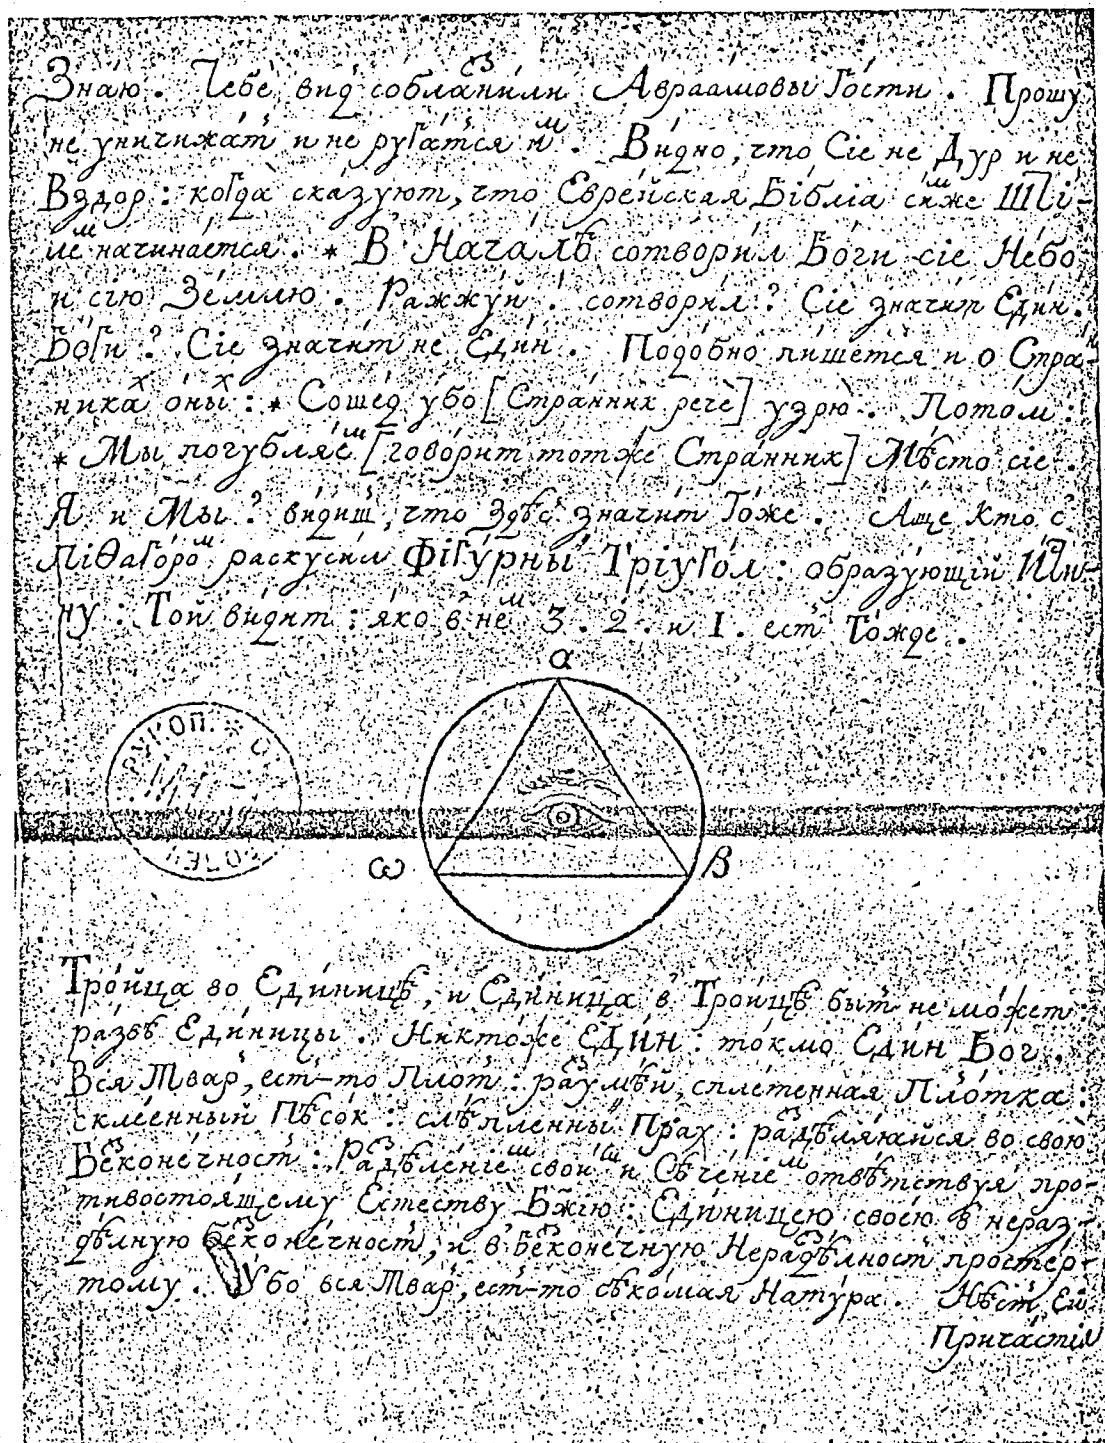 Знаю. Тебе́ вид соблазни́ли Авраамовы Гости. Прошу́
не уничижа́ть и не руга́тся им. Ви́дно, что Сіе не Дур и не
Вздор: когда ска́зуют, что Евре́йская Бі́бліа си́мже Шті-
лем начина́ется. * В Нача́лѣ сотвори́л Бо́ги сіе Не́бо
и сію Зе́млю. Ражжуй! сотвори́л? Сіе́ значи́т Еди́н.
Бо́ги? Сіе значи́т не Еди́н. Подо́бно пи́шется и о Стра́н-
никах оны́х: * Соше́д у́бо [Стра́нник рече́] узрю. Пото́м:
* Мы погубляе́м [гово́рит тот же Стра́нник] Мѣ́сто сіе.
Я и Мы? ви́диш, что Здѣсь значи́т То́же. Аще Кто с
Піѳаго́ром раскуси́л Фігу́рны Тріуго́л: образу́ющій И́сти-
ну: Той ви́дит: яко в не́м 3. 2. и 1. есть То́жде.
α
РУКОП.
ω β
Тро́йца во Еди́ницѣ, и Еди́ница в Троицѣ быть не мо́жет:
ра́звѣ Еди́ницы. Никто́же ЕДИ́Н: то́кмо Еди́н Бог.
Вся Тварь, есть-то Плоть: разумѣ́й, спле́тенная Пло́тка:
скле́енный Пѣсо́к: слѣ́пленны Прах: раздѣля́ющійся во свою
Безконе́чность: Раздѣле́ніем свои́м и Сѣче́ніем отвѣ́тствуя про-
тивостоя́щему Естеству́ Бжію: Еди́ницею своею в нераз-
дѣ́лную безконе́чность, и в безконе́чную Нераздѣ́лность просте́р-
тому. Убо вся Тварь, есть-то сѣко́мая Нату́ра. Нѣсть Ей
Прича́стія